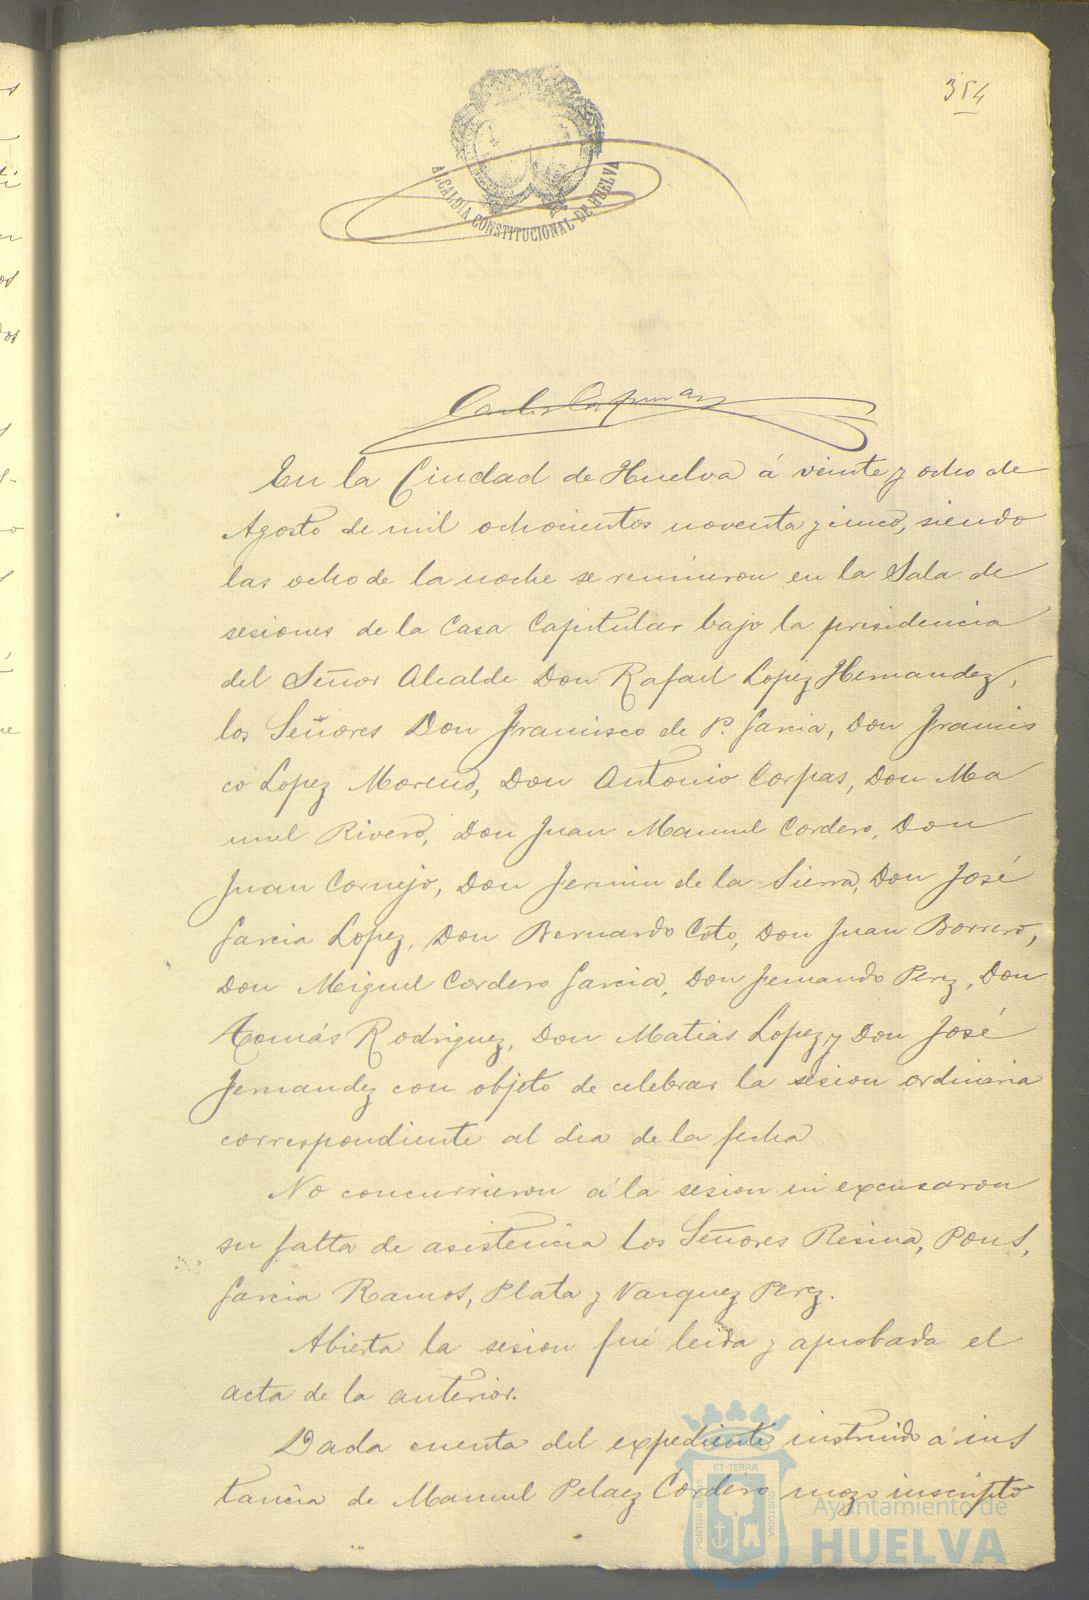 354
ALCALDÍA CONSTITUCIONAL DE HUELVA
En la Ciudad de Huelva á veinte y ocho de
Agosto de mil ochocientos noventa y cinco, siendo
las ocho de la noche se reunieron en la Sala de
sesiones de la Casa Capitular bajo la presidencia
del Señor Alcalde Don Rafael Lopez Hernandez,
los Señores Don Francisco de P. Garcia, Don Francis
co Lopez Moreno, Don Antonio Corpas, Don Ma
nuel Rivero, Don Juan Manuel Cordero, Don
Juan Cornejo, Don Fermin de la Sierra, Don José
Garcia Lopez, Don Bernardo Coto, Don Juan Borrero,
Don Miguel Cordero Garcia, Don Fernando Perez, Don
Tomás Rodriguez, Don Matias Lopez y Don José
Fernandez con objeto de celebrar la sesion ordinaria
correspondiente al dia de la fecha
No concurrieron á la sesion ni excusaron
su falta de asistencia los Señores Resina, Pons,
Garcia Ramos, Plata y Vazquez Perez.
Abierta la sesion fué leida y aprobada el
acta de la anterior.
Dada cuenta del expediente instruido á ins
tancia de Manuel Pelaez Cordero mozo inscripto
PORTUS MARIS ET TERRÆ CUSTODIA
Ayuntamiento de
HUELVA